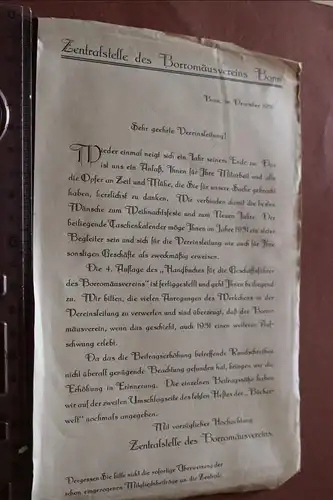 Zentralstelle des Borromäusvereins Bonn
Bonn, im Dezember 1930
Sehr geehrte Vereinsleitung!
Wieder einmal neigt sich ein Jahr seinem Ende zu. Dies
ist uns ein Anlaß, Ihnen für Ihre Mitarbeit und alle
die Opfer an Zeit und Mühe, die Sie für unsere Sache gebracht
haben, herzlichst zu danken. Wir verbinden damit die besten
Wünsche zum Weihnachtsfeste und zum Neuen Jahre. Der
beiliegende Taschenkalender möge Ihnen im Jahre 1931 ein steter
Begleiter sein und sich für die Vereinsleitung wie auch für Ihre
sonstigen Geschäfte als zweckmäßig erweisen.
Die 4. Auflage des „Handbuches für die Geschäftsführer
des Borromäusvereins" ist fertiggestellt und geht Ihnen beiliegend
zu. Wir bitten, die vielen Anregungen des Werkchens in der
Vereinsleitung zu verwerten und sind überzeugt, daß der Borro-
mäusverein, wenn das geschieht, auch 1931 einen weiteren Auf-
schwung erlebt.
Da das die Beitragserhöhung betreffende Rundschreiben
nicht überall genügende Beachtung gefunden hat, bringen wir die
Erhöhung in Erinnerung. Die einzelnen Beitragssätze haben
wir auf der zweiten Umschlagseite des letzten Heftes der „Bücher-
welt" nochmals angegeben.
Mit vorzüglicher Hochachtung
Zentralstelle des Borromäusvereins
Vergessen Sie bitte nicht die sofortige Überweisung der
schon eingezogenen Mitgliedsbeiträge an die Zentrale.